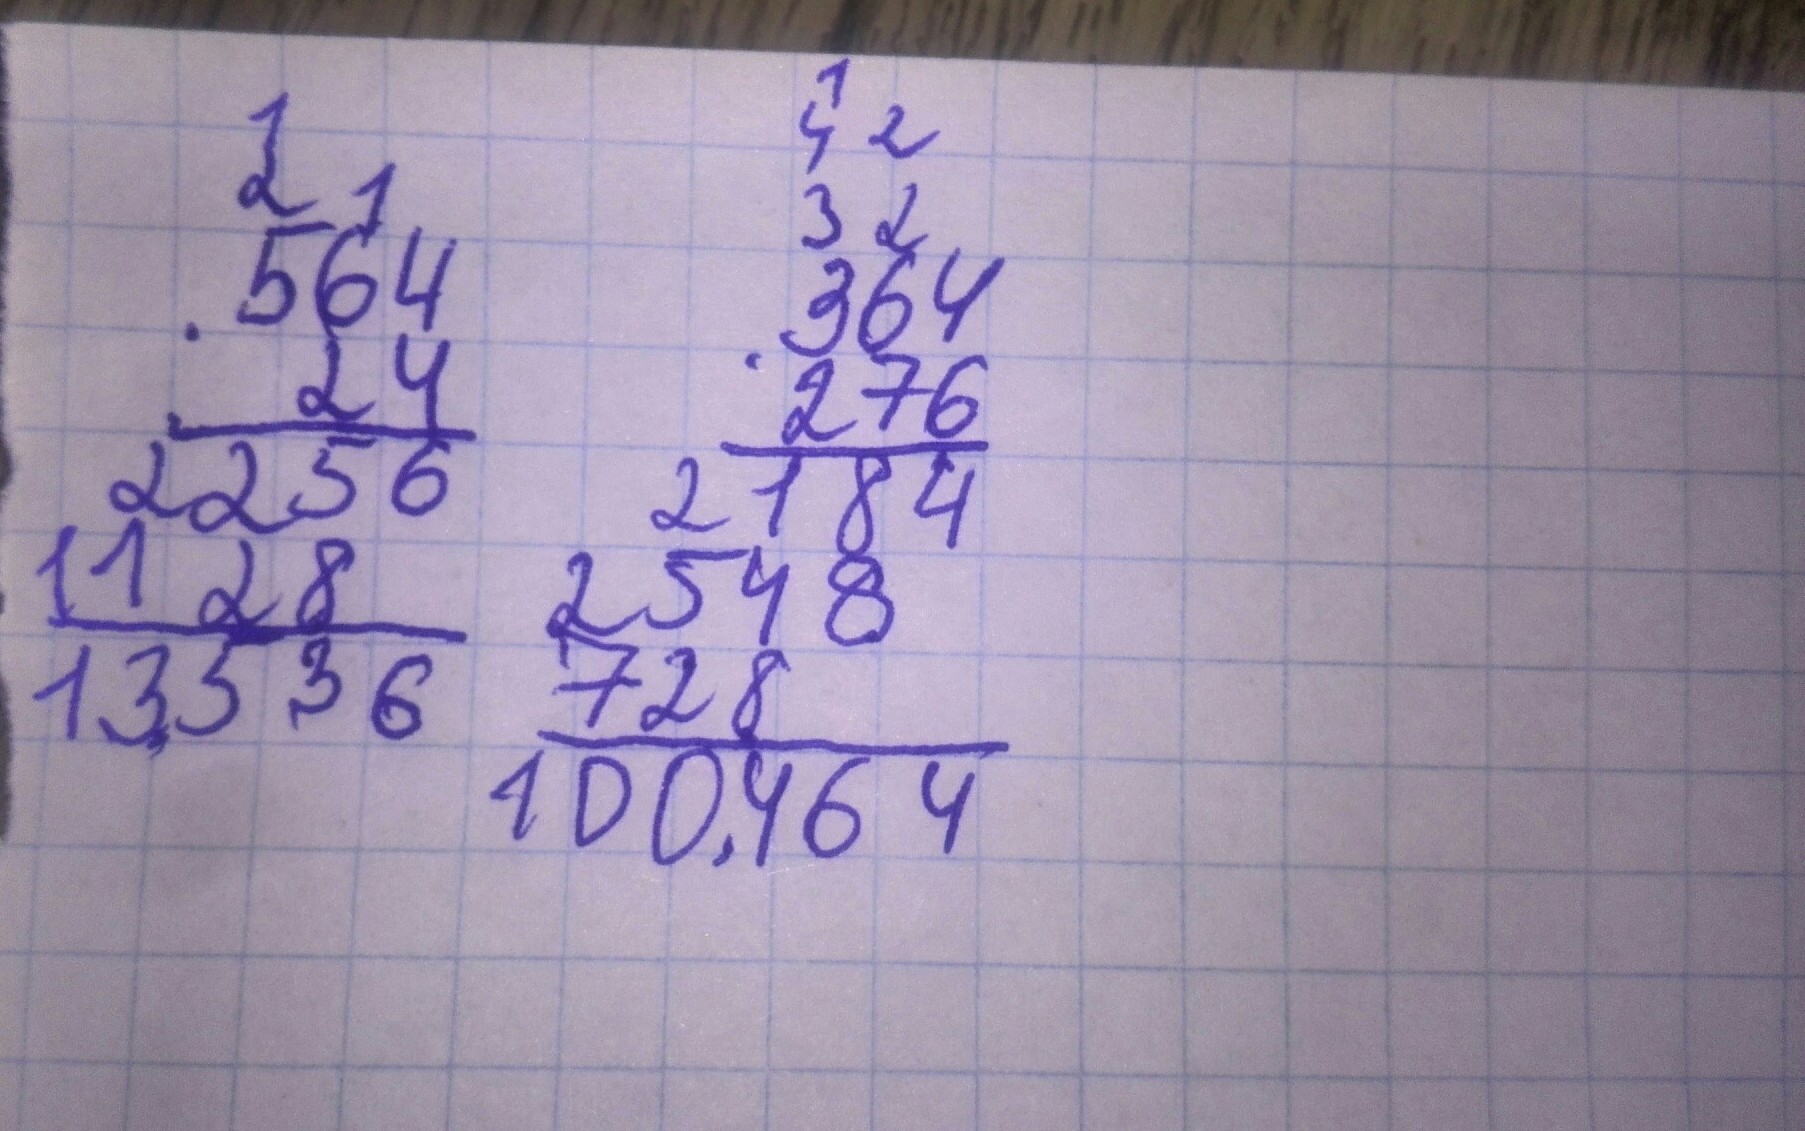 1
2 1
564
. 24
2256
1128
13.536
1
4 2
3 2
364
. 276
2184
2548
728
100.464